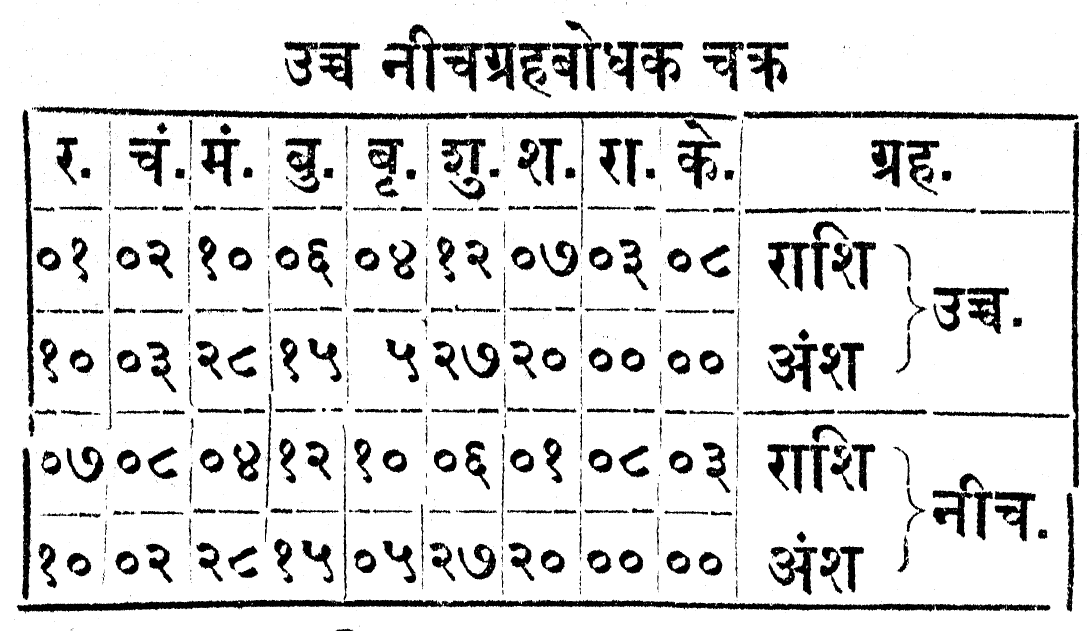 उच्च नीचग्रहबोधक चक्र
र. चं. मं. बु. बृ. शु. श. रा. के. ग्रह.
०१ ०२ १० ०६ ०४ १२ ०७ ०३ ०८ राशि
उच्च.
१० ०३ २८ १५ ५ २७ २० ०० ०० अंश
०७ ०८ ०४ १२ १० ०६ ०१ ०८ ०३ राशि
नीच.
१० ०२ २८ १५ ०५ २७ २० ०० ०० अंश